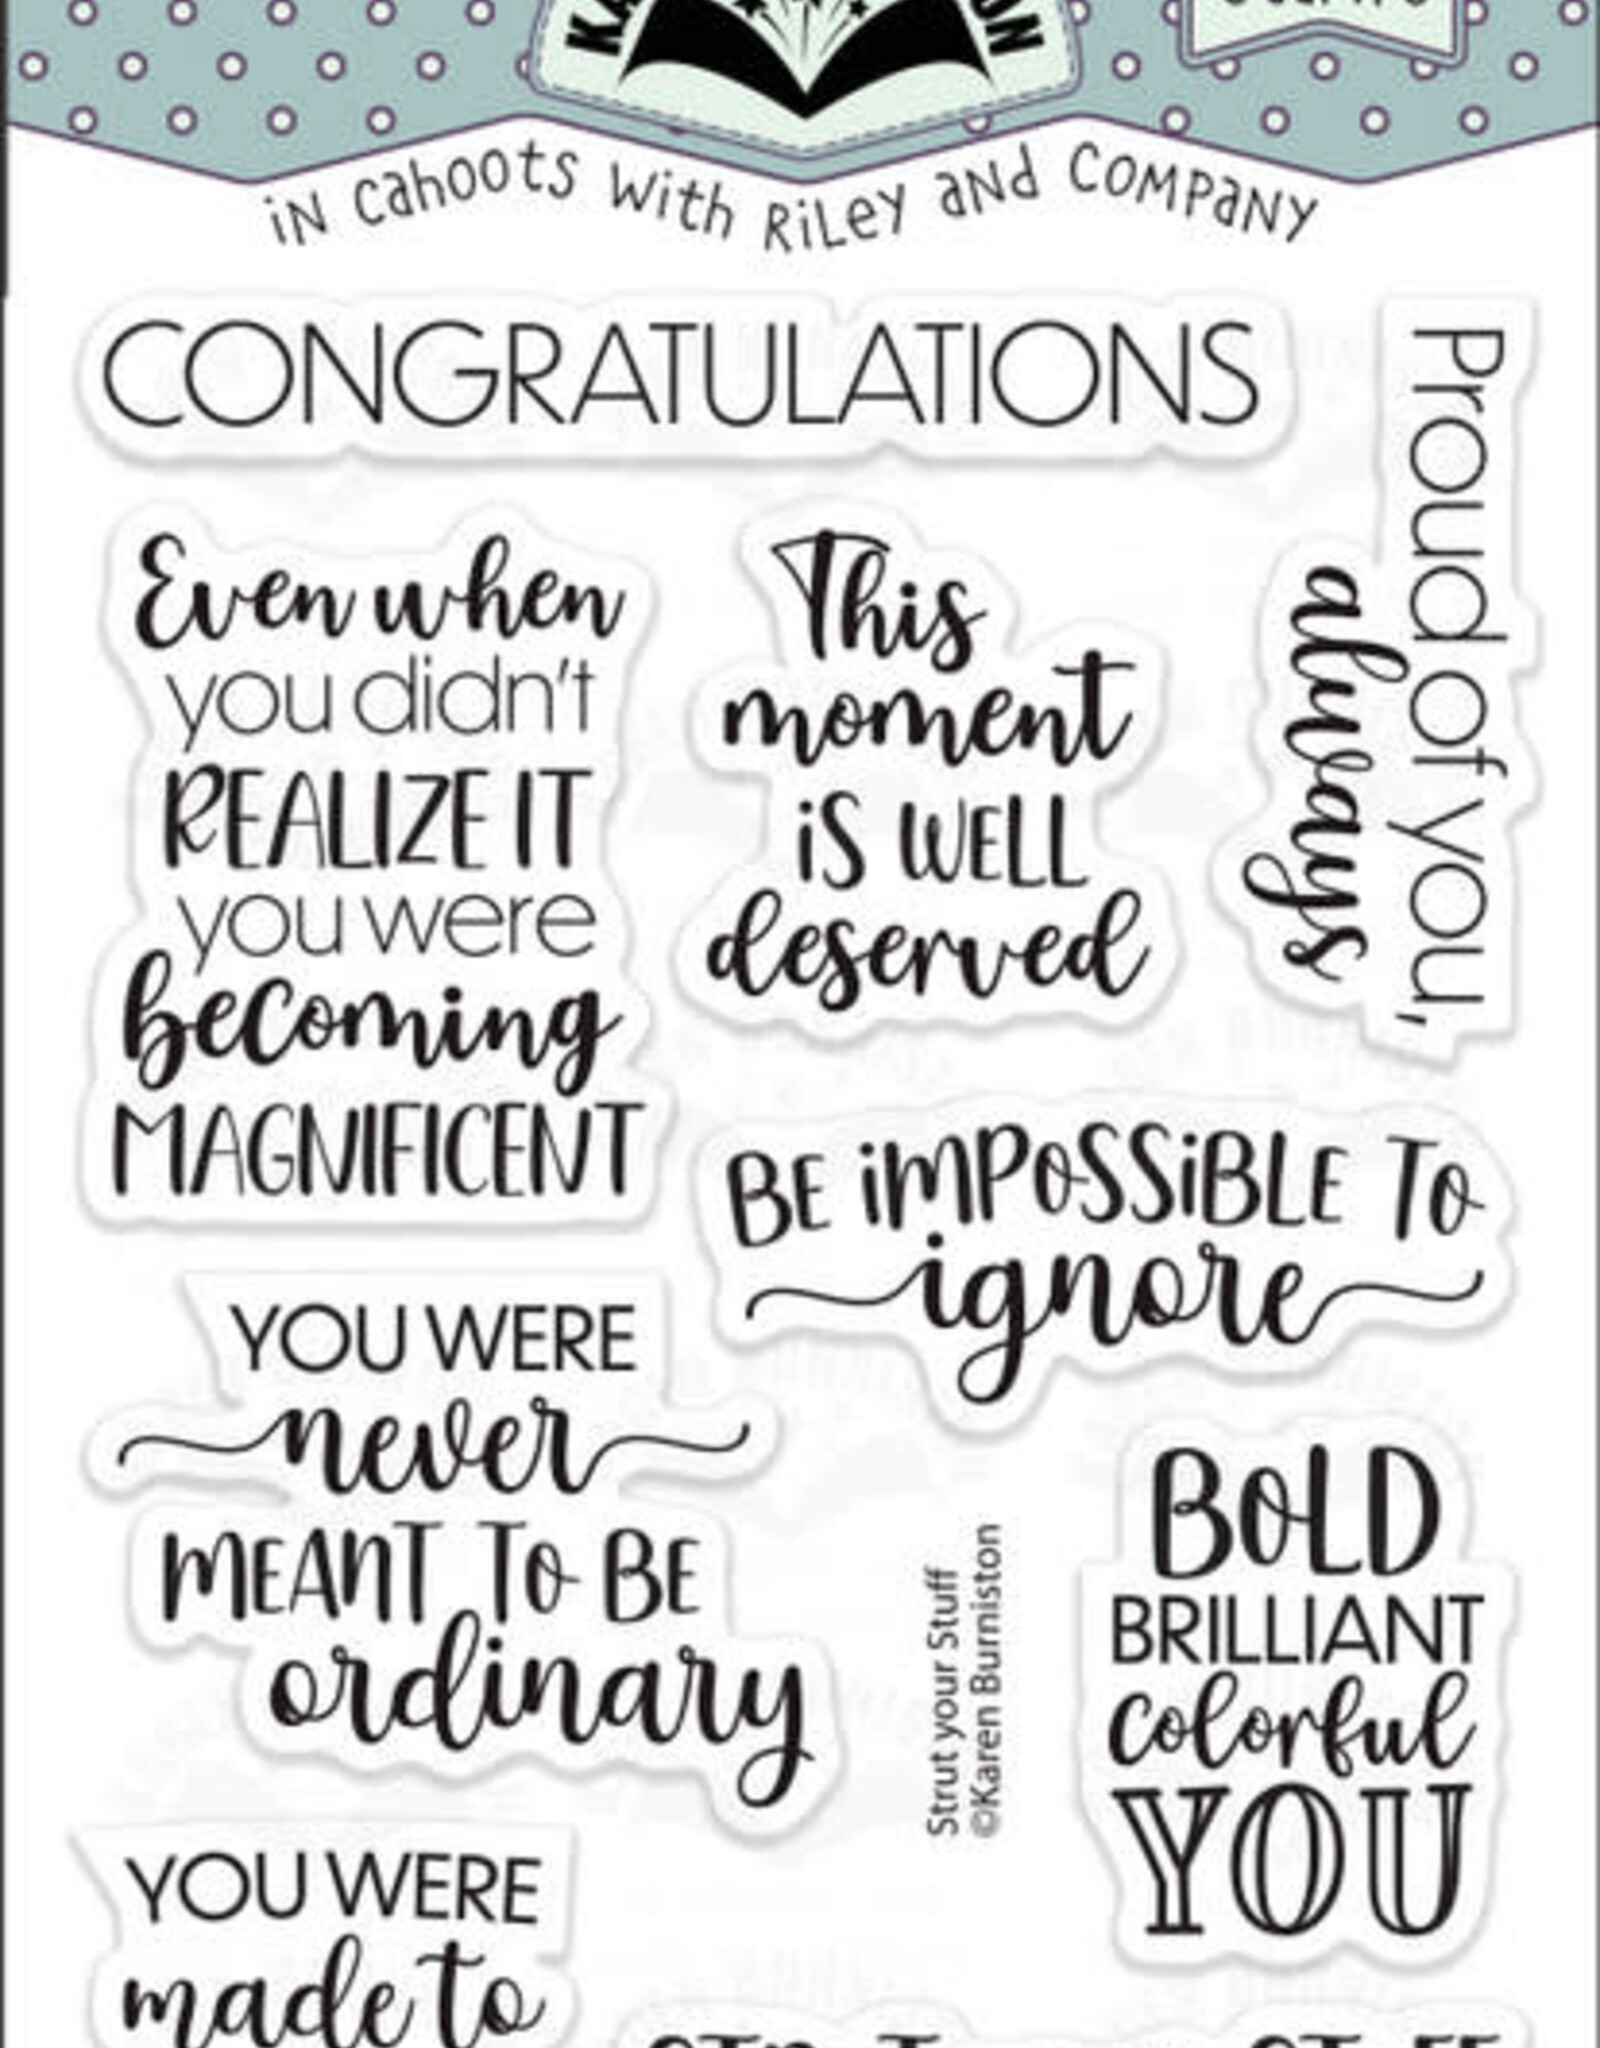 iN cahoots with RiLey aNd COMPaNY
CONGRATULATIONS
Proud of you,
always
Even when
you didn't
REALIZE IT
you were
becoming
MAGNIFICENT
This
moment
iS WELL
deserved
BE iMPoSSiBLE To
ignore
YOU WERE
never
MEANT To BE
ordinary
Strut your Stuff
©Karen Burniston
BoLD
BRILLIANT
colorful
YOU
YOU WERE
made to